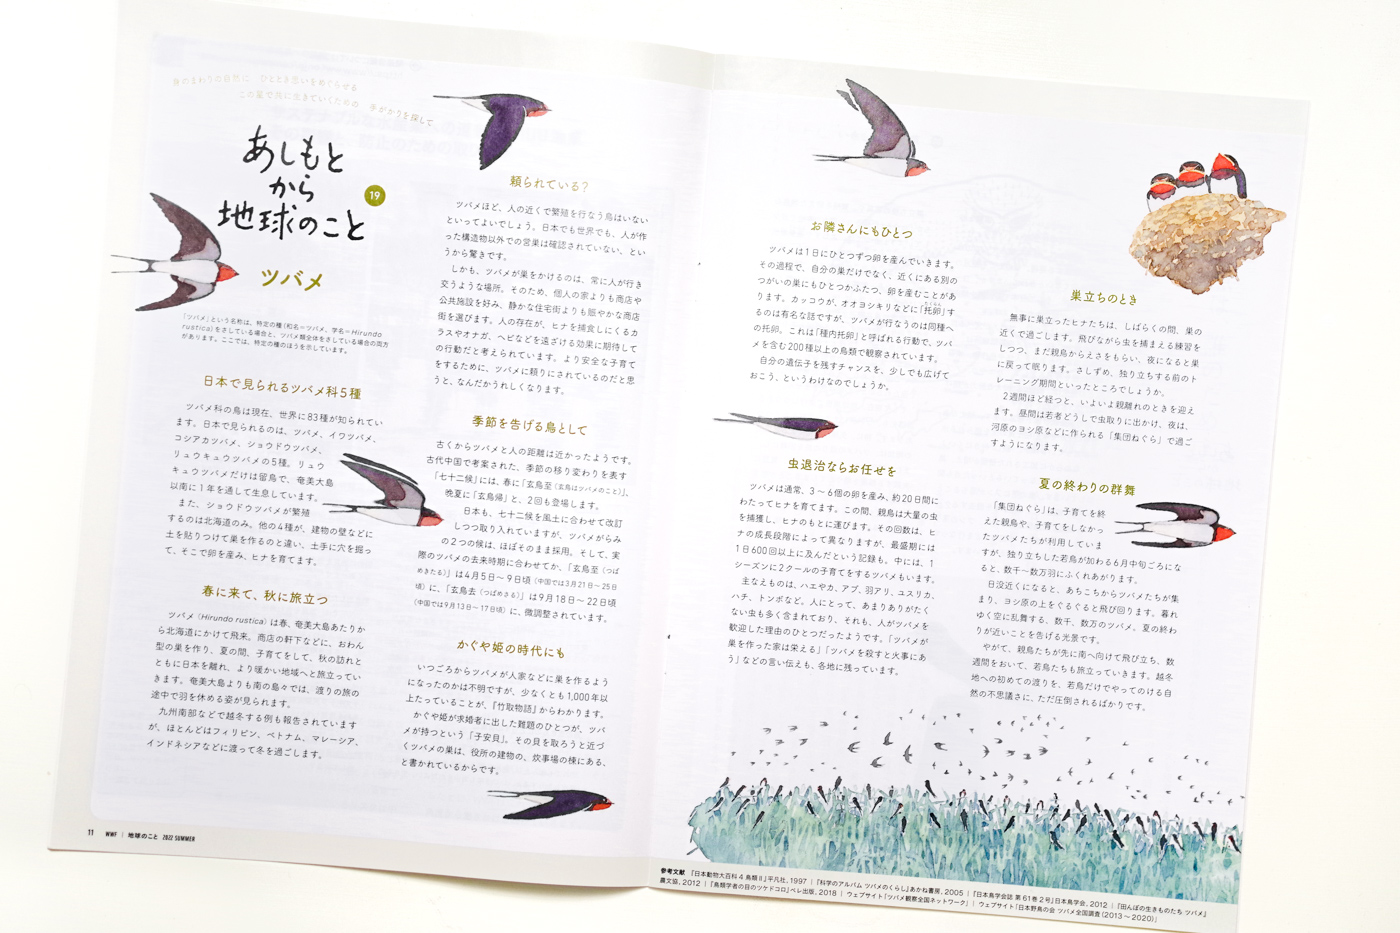 身のまわりの自然に ひととき思いをめぐらせる
この星で共に生きていくための 手がかりを探して
あしもと
から
地球のこと
19
ツバメ
「ツバメ」という名称は、特定の種（和名＝ツバメ、学名＝Hirundo
rustica）をさしている場合と、ツバメ類全体をさしている場合の両方
があります。ここでは、特定の種のほうを示しています。
日本で見られるツバメ科5種
ツバメ科の鳥は現在、世界に83種が知られてい
ます。日本で見られるのは、ツバメ、イワツバメ、
コシアカツバメ、ショウドウツバメ、
リュウキュウツバメの5種。リュウ
キュウツバメだけは留鳥で、奄美大島
以南に1年を通して生息しています。
また、ショウドウツバメが繁殖
するのは北海道のみ。他の4種が、建物の壁などに
土を貼りつけて巣を作るのと違い、土手に穴を掘っ
て、そこで卵を産み、ヒナを育てます。
春に来て、秋に旅立つ
ツバメ（Hirundo rustica）は春、奄美大島あたりか
ら北海道にかけて飛来。商店の軒下などに、おわん
型の巣を作り、夏の間、子育てをして、秋の訪れと
ともに日本を離れ、より暖かい地域へと旅立ってい
きます。奄美大島よりも南の島々では、渡りの旅の
途中で羽を休める姿が見られます。
九州南部などで越冬する例も報告されています
が、ほとんどはフィリピン、ベトナム、マレーシア、
インドネシアなどに渡って冬を過ごします。
頼られている？
ツバメほど、人の近くで繁殖を行なう鳥はいない
といってよいでしょう。日本でも世界でも、人が作
った構造物以外での営巣は確認されていない、とい
うから驚きです。
しかも、ツバメが巣をかけるのは、常に人が行き
交うような場所。そのため、個人の家よりも商店や
公共施設を好み、静かな住宅街よりも賑やかな商店
街を選びます。人の存在が、ヒナを捕食しにくるカ
ラスやオナガ、ヘビなどを遠ざける効果に期待して
の行動だと考えられています。より安全な子育て
をするために、ツバメに頼りにされているのだと思
うと、なんだかうれしくなります。
季節を告げる鳥として
古くからツバメと人の距離は近かったようです。
古代中国で考案された、季節の移り変わりを表す
「七十二候」には、春に「玄鳥至（玄鳥はツバメのこと）」、
晩夏に「玄鳥帰」と、2回も登場します。
日本も、七十二候を風土に合わせて改訂
しつつ取り入れていますが、ツバメがらみ
の2つの候は、ほぼそのまま採用。そして、実
際のツバメの去来時期に合わせてか、「玄鳥至（つば
めきたる）」は4月5日〜9日頃（中国では3月21日〜25日
頃）に、「玄鳥去（つばめさる）」は9月18日〜22日頃
（中国では9月13日〜17日頃）に、微調整されています。
かぐや姫の時代にも
いつごろからツバメが人家などに巣を作るよう
になったのかは不明ですが、少なくとも1,000年以
上たっていることが、『竹取物語』からわかります。
かぐや姫が求婚者に出した難題のひとつが、ツバ
メが持つという「子安貝」。その貝を取ろうと近づ
くツバメの巣は、役所の建物の、炊事場の棟にある、
と書かれているからです。
11 WWF | 地球のこと 2022 SUMMER
お隣さんにもひとつ
ツバメは1日にひとつずつ卵を産んでいきます。
その過程で、自分の巣だけでなく、近くにある別の
つがいの巣にもひとつかふたつ、卵を産むことがあ
ります。カッコウが、オオヨシキリなどに「托卵」す
るのは有名な話ですが、ツバメが行なうのは同種へ
の托卵。これは「種内托卵」と呼ばれる行動で、ツバ
メを含む200種以上の鳥類で観察されています。
自分の遺伝子を残すチャンスを、少しでも広げて
おこう、というわけなのでしょうか。
虫退治ならお任せを
ツバメは通常、3〜6個の卵を産み、約20日間に
わたってヒナを育てます。この間、親鳥は大量の虫
を捕獲し、ヒナのもとに運びます。その回数は、ヒ
ナの成長段階によって異なりますが、最盛期には
1日600回以上に及んだという記録も。中には、1
シーズンに2クールの子育てをするツバメもいます。
主なえものは、ハエやカ、アブ、羽アリ、ユスリカ、
ハチ、トンボなど。人にとって、あまりありがたく
ない虫も多く含まれており、それも、人がツバメを
歓迎した理由のひとつだったようです。「ツバメが
巣を作った家は栄える」「ツバメを殺すと火事にあ
う」などの言い伝えも、各地に残っています。
巣立ちのとき
無事に巣立ったヒナたちは、しばらくの間、巣の
近くで過ごします。飛びながら虫を捕まえる練習を
しつつ、まだ親鳥からえさをもらい、夜になると巣
に戻って眠ります。さしずめ、独り立ちする前のト
レーニング期間といったところでしょうか。
2週間ほど経つと、いよいよ親離れのときを迎え
ます。昼間は若者どうしで虫取りに出かけ、夜は、
河原のヨシ原などに作られる「集団ねぐら」で過ご
すようになります。
夏の終わりの群舞
「集団ねぐら」は、子育てを終
えた親鳥や、子育てをしなかっ
たツバメたちが利用していま
すが、独り立ちした若鳥が加わる6月中旬ごろにな
ると、数千〜数万羽にふくれあがります。
日没近くになると、あちこちからツバメたちが集
まり、ヨシ原の上をぐるぐると飛び回ります。暮れ
ゆく空に乱舞する、数千、数万のツバメ。夏の終わ
りが近いことを告げる光景です。
やがて、親鳥たちが先に南へ向けて飛び立ち、数
週間をおいて、若鳥たちも旅立っていきます。越冬
地への初めての渡りを、若鳥だけでやってのける自
然の不思議さに、ただ圧倒されるばかりです。
参考文献 『日本動物大百科 4 鳥類Ⅱ』平凡社、1997 | 『科学のアルバム ツバメのくらし』あかね書房、2005 | 『日本鳥学会誌 第61巻2号』日本鳥学会、2012 | 『田んぼの生きものたち ツバメ』
農文協、2012 | 『鳥類学者の目のツケドコロ』ベレ出版、2018 | ウェブサイト「ツバメ観察全国ネットワーク」 | ウェブサイト「日本野鳥の会 ツバメ全国調査（2013〜2020）」